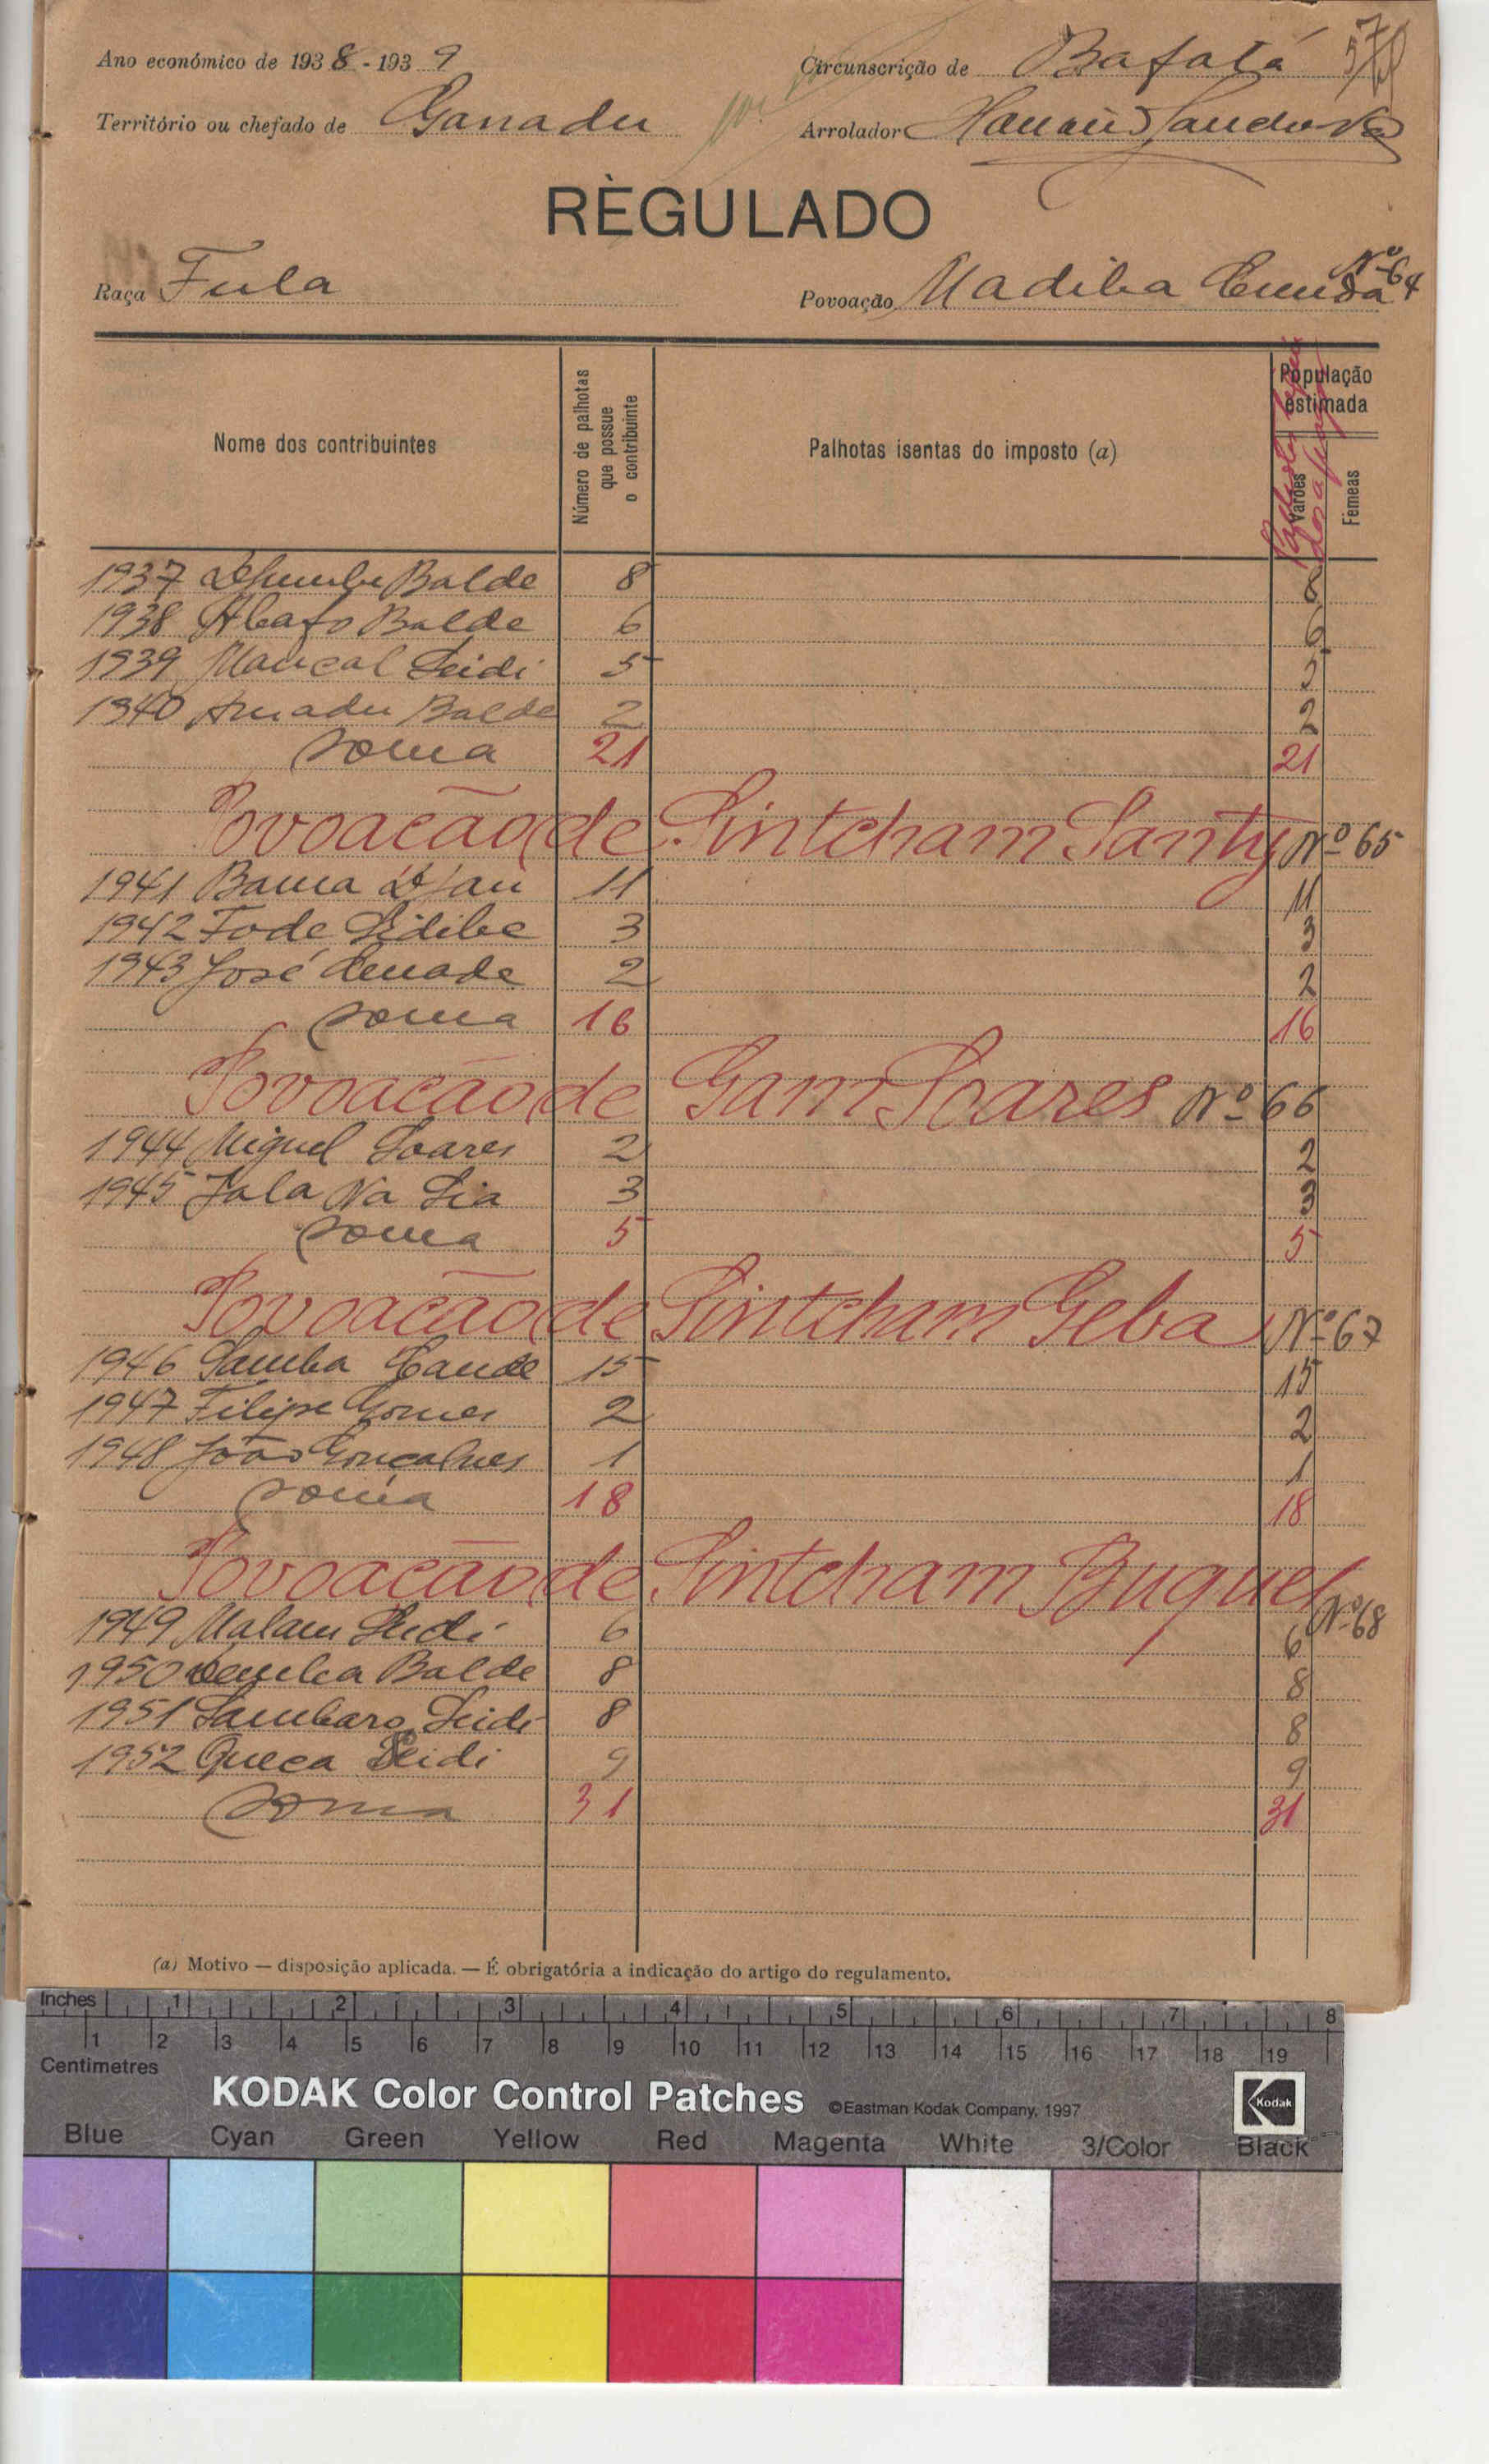 Ano económico de 1938-1939
Circunscrição de Bafatá
Território ou chefado de Ganadu
Arrolador
RÈGULADO
Raça Fula
Povoação Madiba Cunda Nº 64
Nome dos contribuintes
Número de palhotas que possue o contribuinte
Palhotas isentas do imposto (a)
População estimada
Varões
Fêmeas
1937 Balde 8 8
1938 Balde 6 6
1939 Mancal Seidi 5 5
1940 Amadu Balde 2 2
Soma 21 21
Povoação de Sintcham Santy Nº 65
1941 Bama Djau 11 11
1942 Fode Sidibe 3 3
1943 José 2 2
Soma 16 16
Povoação de Gam Soares Nº 66
1944 Miguel Soares 2 2
1945 Jala Na Sia 3 3
Soma 5 5
Povoação de Sintcham Geba Nº 67
1946 Samba Cande 15 15
1947 Filipe Gomes 2 2
1948 João Gonçalves 1 1
Soma 18 18
Povoação de Sintcham Buquel Nº 68
1949 Malam Seidi 6 6
1950 Demba Balde 8 8
1951 Sambaro Seidi 8 8
1952 Queca Seidi 9 9
Soma 31 31
(a) Motivo — disposição aplicada. — É obrigatória a indicação do artigo do regulamento.
Inches 1 2 3 4 5 6 7 8
1 2 3 4 5 6 7 8 9 10 11 12 13 14 15 16 17 18 19
Centimetres
KODAK Color Control Patches ©Eastman Kodak Company, 1997 Kodak
Blue Cyan Green Yellow Red Magenta White 3/Color Black